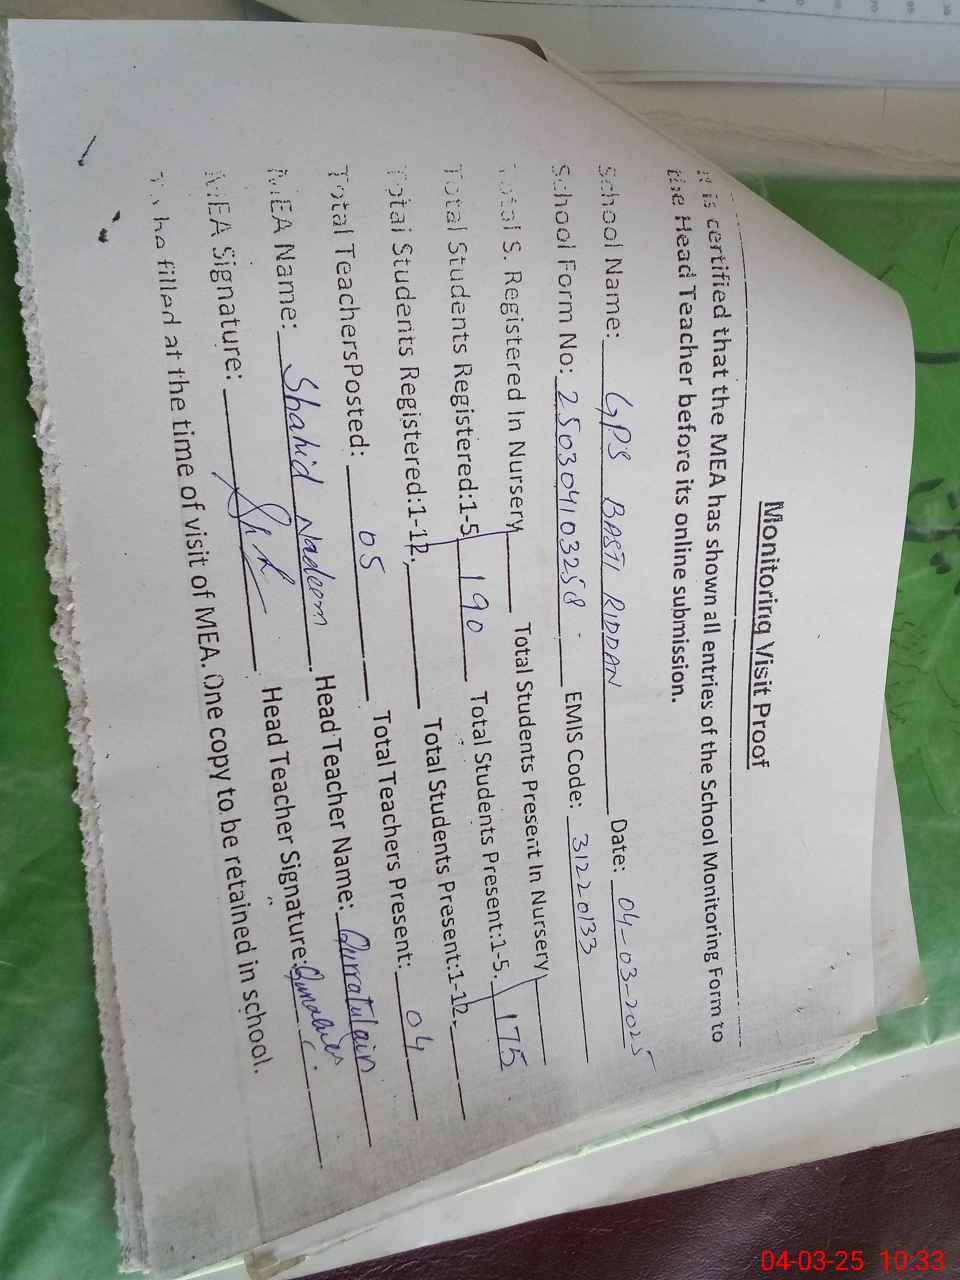 Monitoring Visit Proof
It is certified that the MEA has shown all entries of the School Monitoring Form to
the Head Teacher before its online submission.
School Name: GPS BASTI RIDDAN Date: 04-03-2025
School Form No: 250304103258 EMIS Code: 31220133
Total S. Registered In Nursery Total Students Present In Nursery
Total Students Registered:1-5 190 Total Students Present:1-5. 175
Total Students Registered:1-12. Total Students Present:1-12.
Total TeachersPosted: 05 Total Teachers Present: 04
MEA Name: Shahid Nadeem Head Teacher Name: Qurratulain
MEA Signature: Head Teacher Signature:
To be filled at the time of visit of MEA. One copy to be retained in school.
04-03-25 10:33